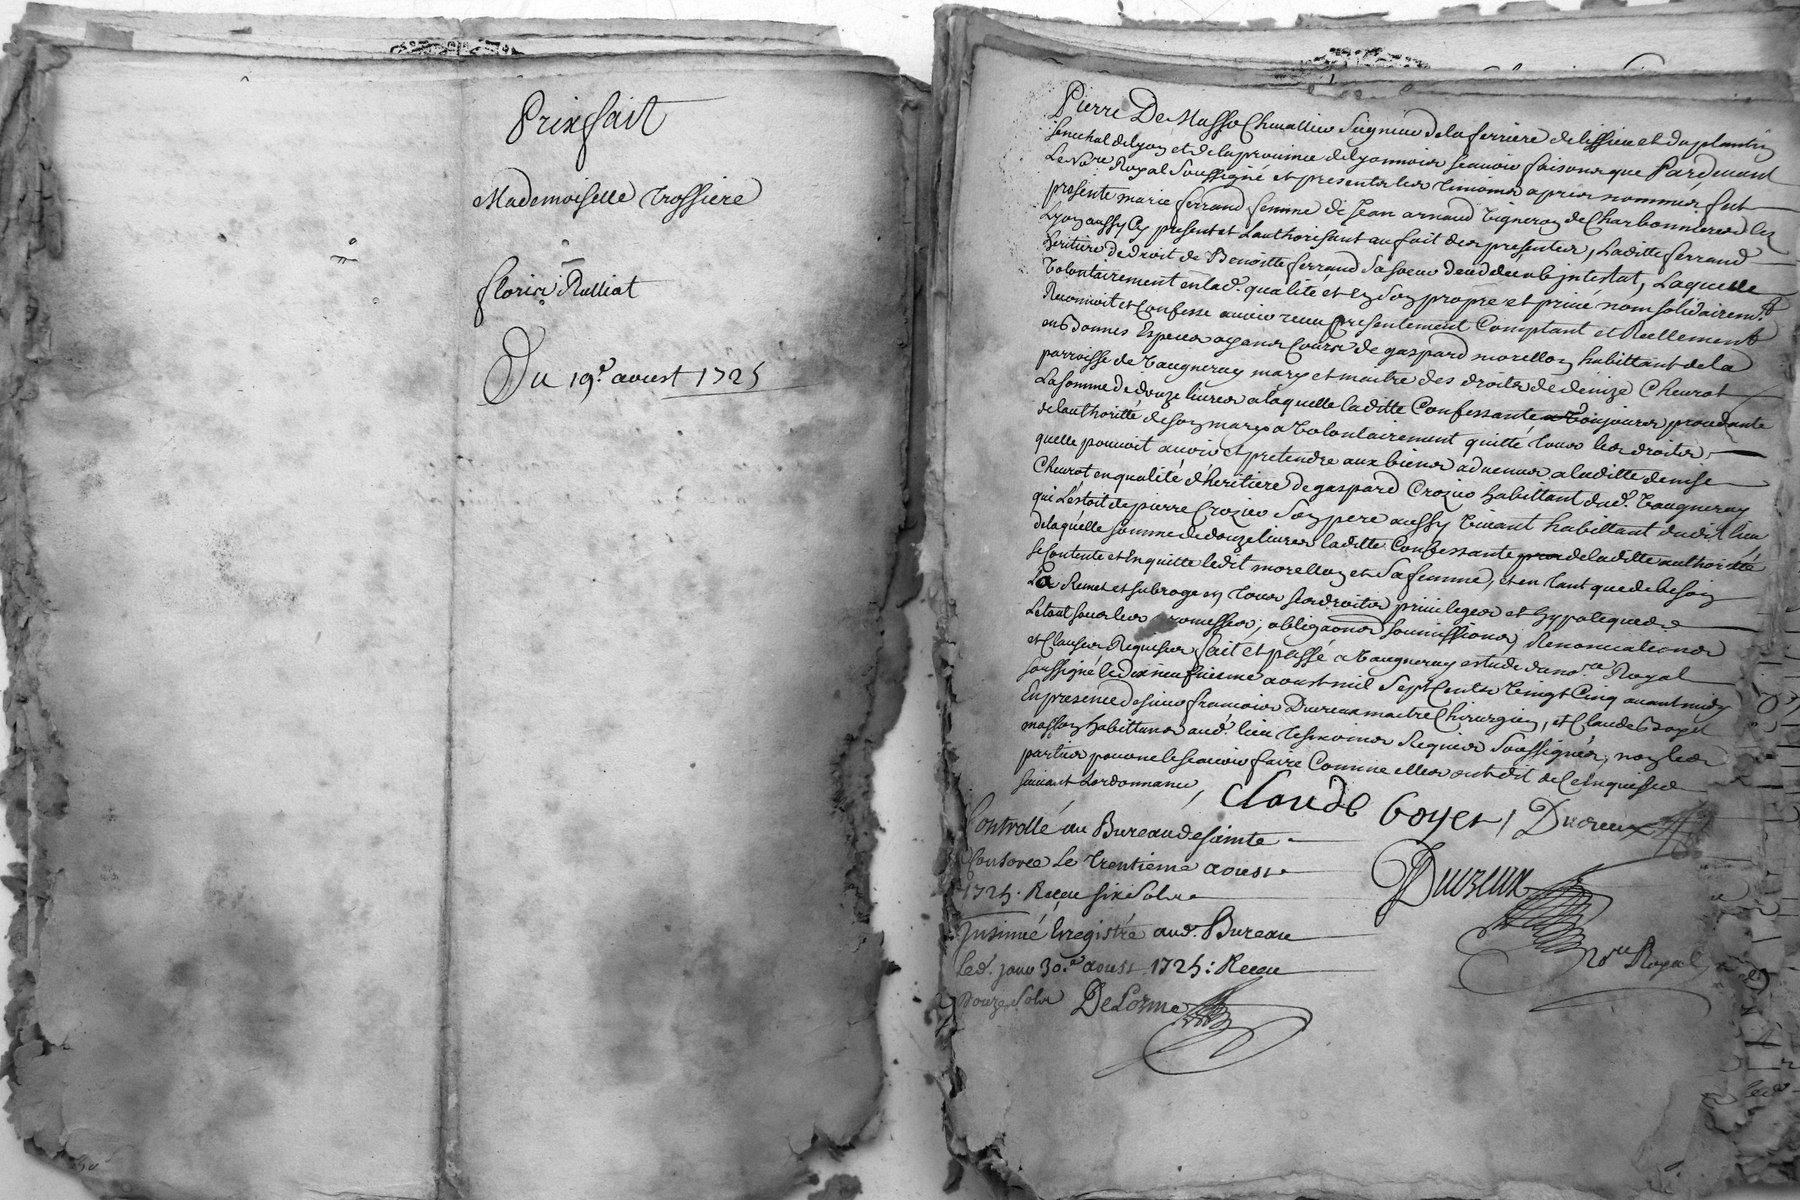 Prixfait
Mademoiselle Trossiere
floris Rulliat
Du 19e. aoust 1725
Pierre De Masso Chevallier Seigneur de la ferriere de lissieu et du plantin
senechal de lyon et de la province de lyonnois scavoir faisons que Pardevant
Le No.re Royal Soussigné et presents les Temoins apres nommés fut
presente marie ferrand femme de Jean arnaud Vigneron de Charbonnieres les
Lyon aussy Cy present et Lauthorisant au fait des presentes, Laditte ferrand
heritiere de droit de Benoitte ferrand Sa soeur decedée ab intestat, Laquelle
Volontairement en lad. qualité et en Son propre et privé nom solidairemt.
Reconnoit et Confesse avoir receu presentement Comptant et Reellement
en Bonnes Especes ayans Cours de gaspard morellon habittant de la
parroisse de Vaugneray mary et maitre des droits de denize Chevrot
La somme de douze livres a laquelle laditte Confessante a Toujours procedante
de lauthorité de son mary a Volontairement quitté Tous les droits
quelle pouvoit avoir et pretendre aux biens advenus a laditte denise
Chevrot en qualité dheritiere de gaspard Crozier habittant dud. Vaugneray
qui Lestoit de pierre Crozier Son pere aussy Vivant habittant dudit lieu
de laquelle somme de douze livres laditte Confessante de laditte authorité
se Contente et En quitte ledit morellon et Sa femme, et en Tant que de besoin
La Remet et subroge en Tous ses droits privileges et hypoteques
Le tout sous les promesses, obligaons soumissions Renonciations
et Clauses Requises fait et passé a Vaugneray estude du no.re Royal
soussigné le dix neufvieme aoust mil Sept Cents Vingt Cinq avant midy
En presence de sieur francois Dureux maitre Chirurgien, et Claude Goyet
masson habittans aud. lieu Tesmoins Requis Soussignés, non les
parties pour ne le scavoir faire Comme elles ont dit de Ce enquises
suivant Lordonnance,
Claude Goyet Dureux
Controllé au Bureau de Sainte
Consorce Le Trentieme aoust
1725. Receu six Sols
Dureux
Insinué Enregistré aud. Bureau
Led. jour 30.e aoust 1725: Receu
No.re Royal
Douze Sols DeLorme